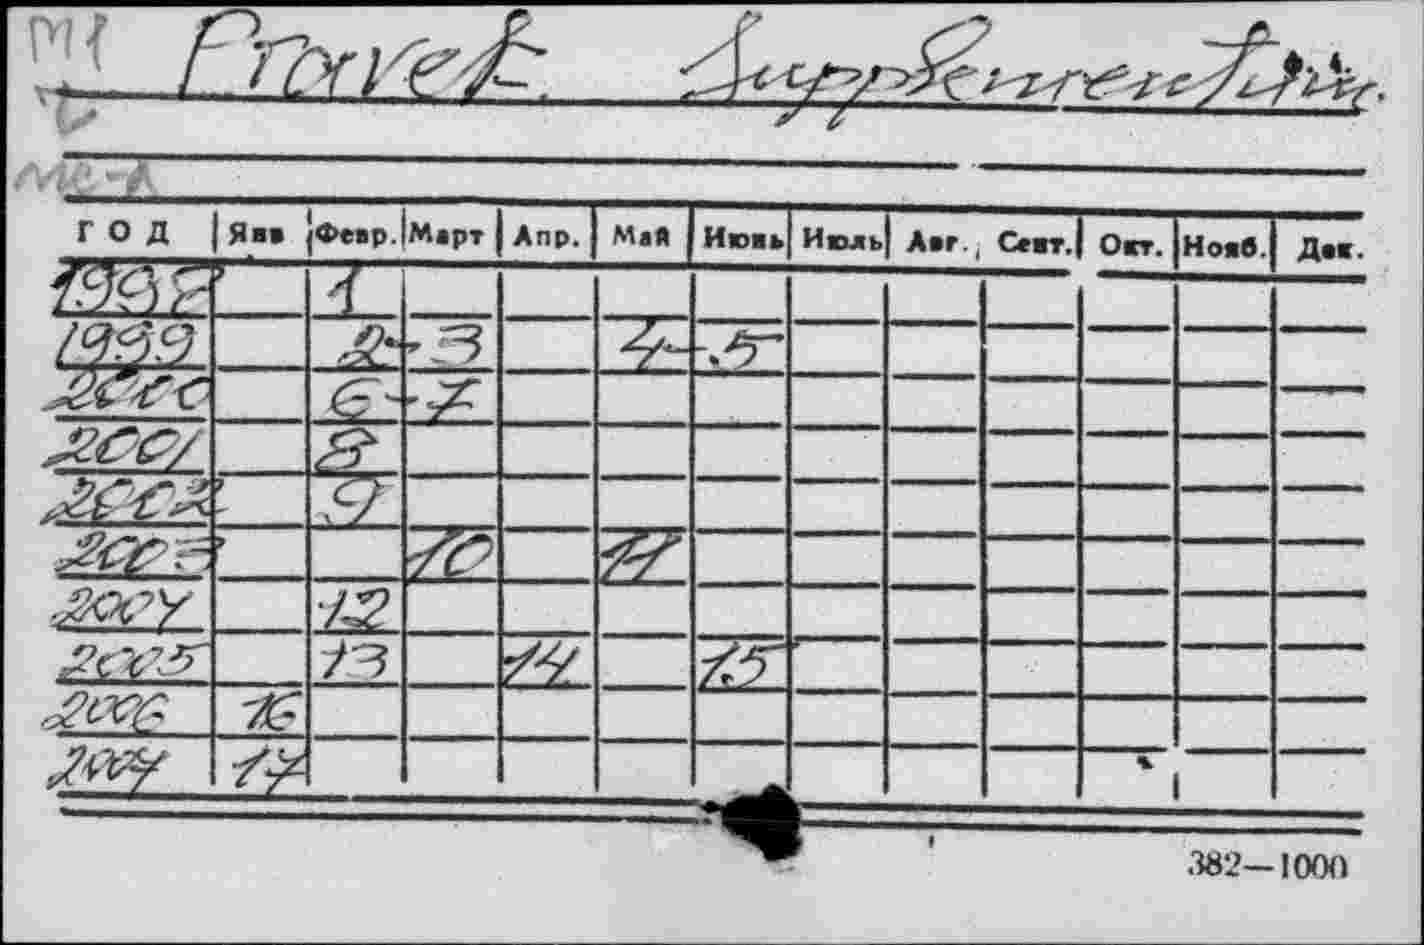 Pravek. Supplementum.
ГОД Янв Февр. Март Апр. Май Июнь Июль Авг. Сент. Окт. Нояб. Дек.
1998 1
1999 2 - 3 4 - 5
2000 6 - 7
2001 8
2002 9
2003 10 11
2004 12
2005 13 14 15
2006 16
2007 17
382—1000